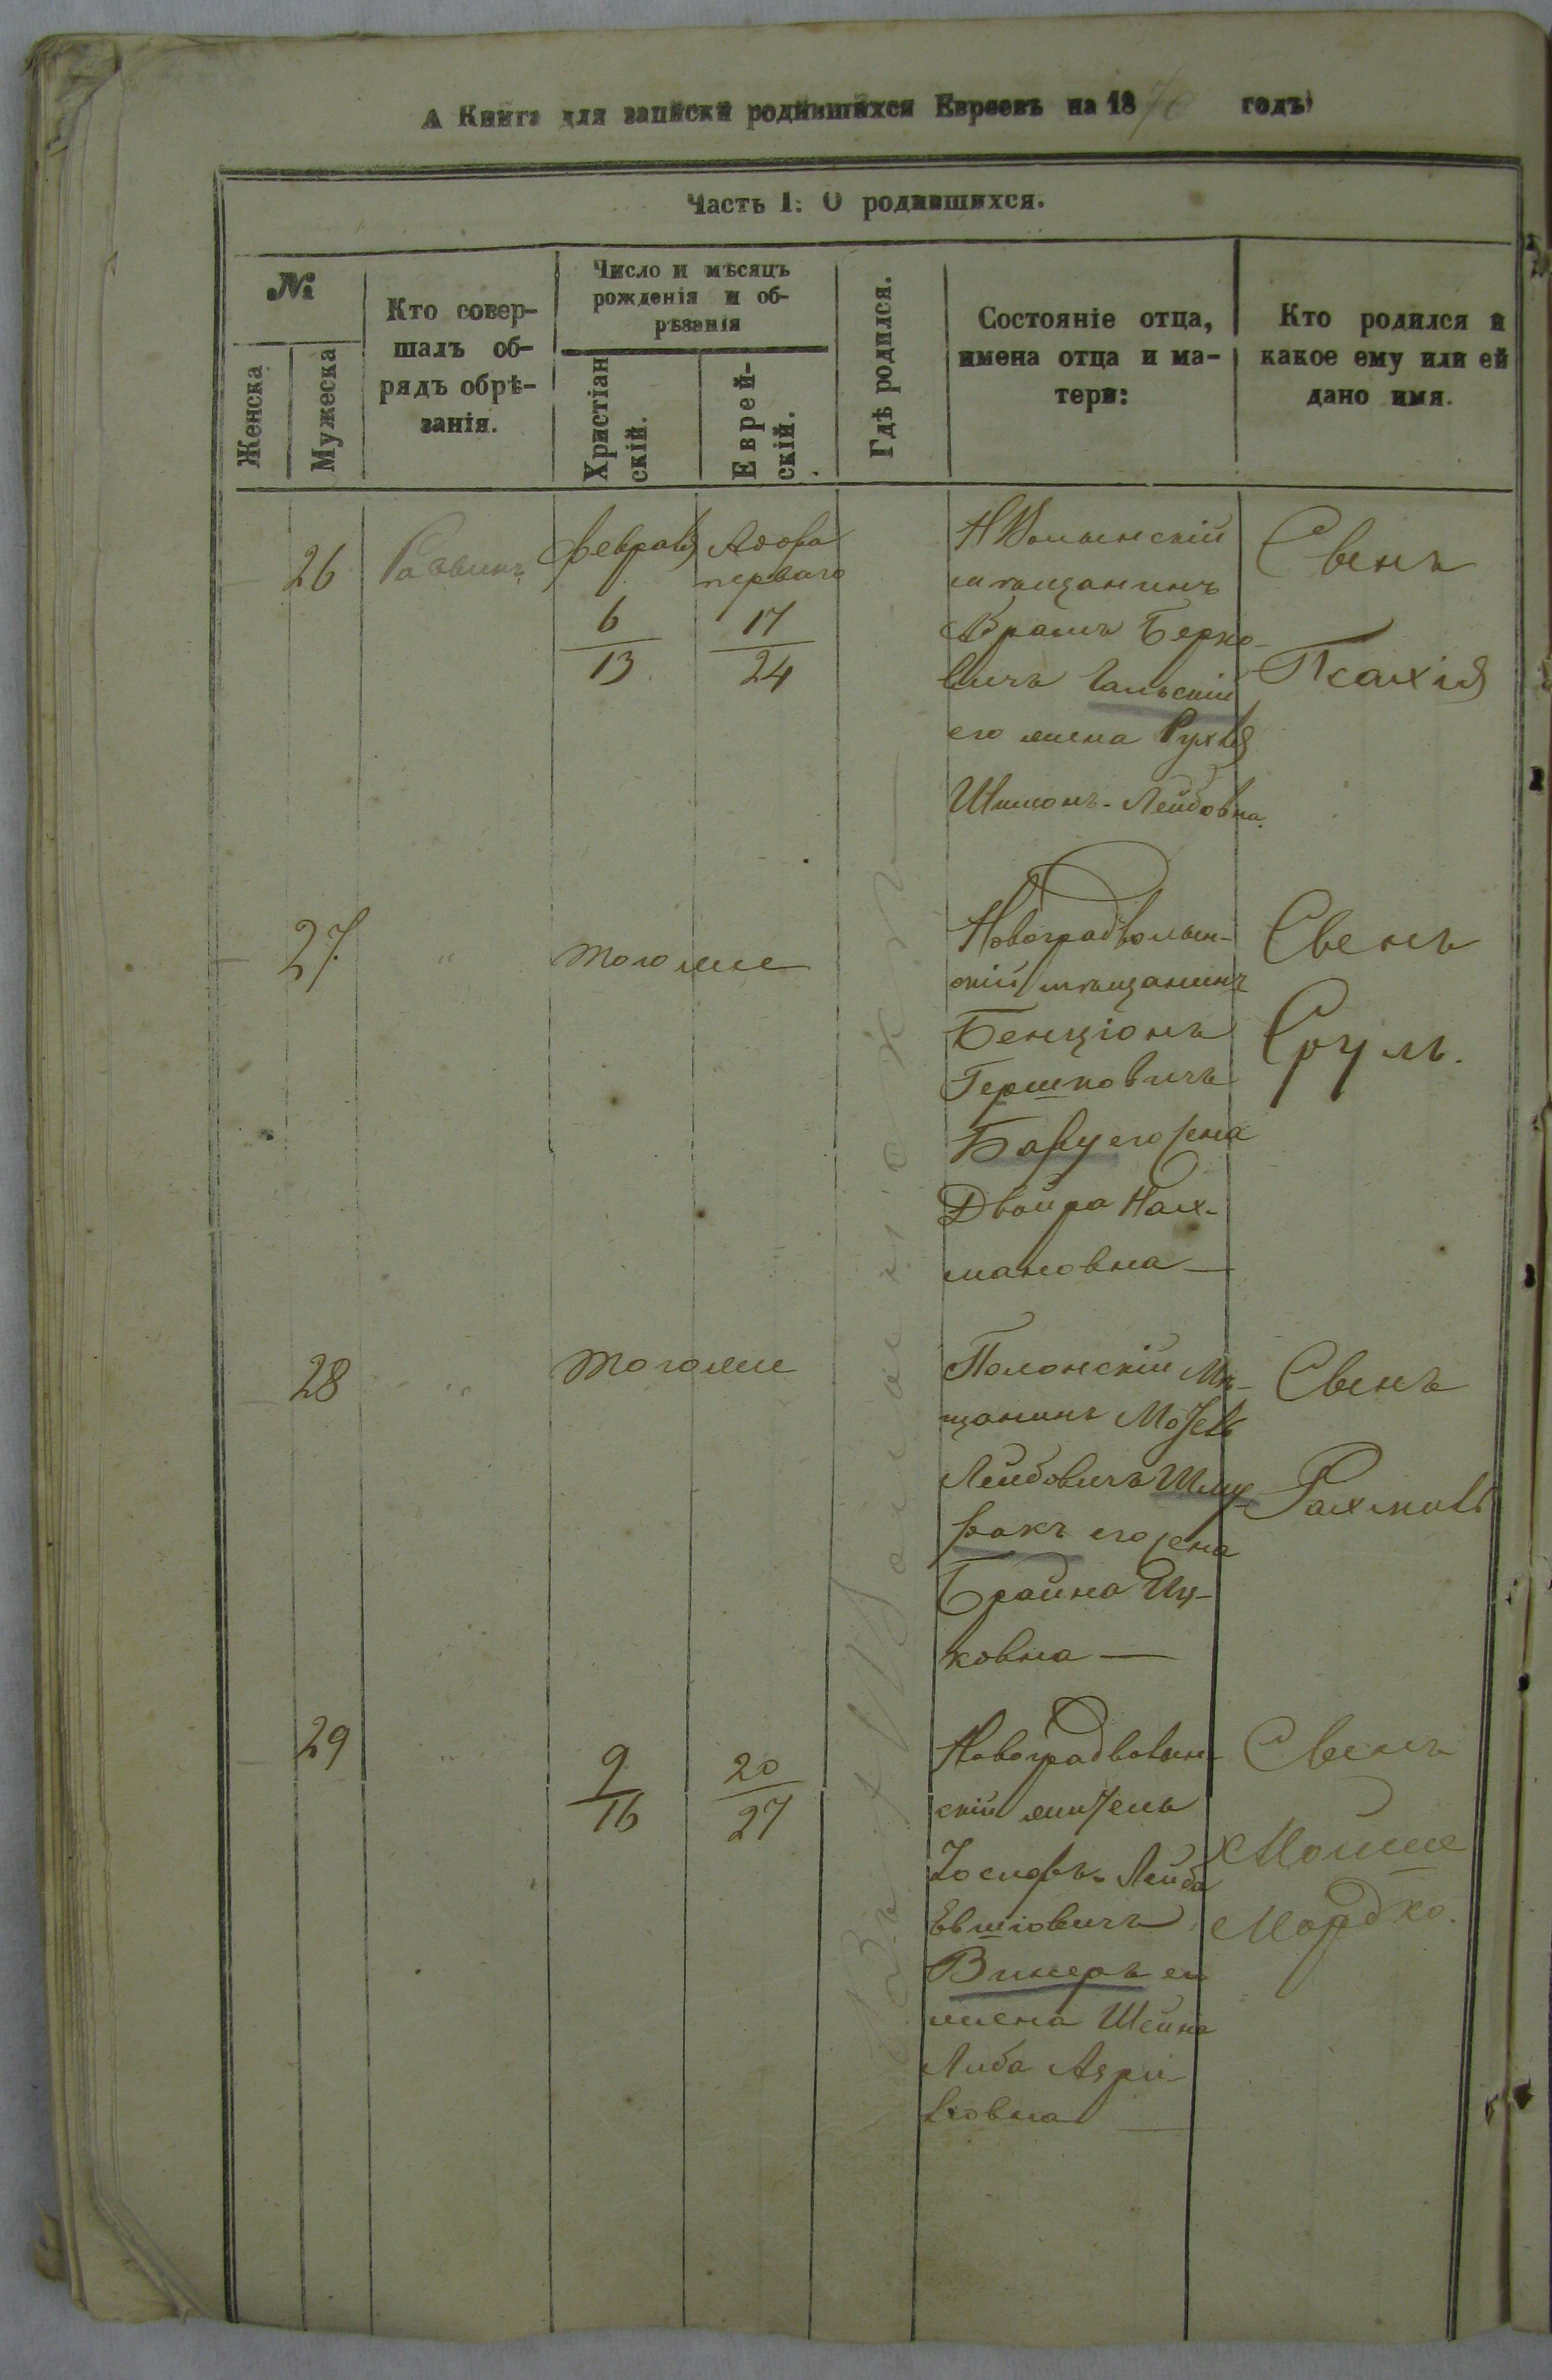 А Книга для записки родившихся Евреевъ на 1870 годъ
Часть I: О родившихся.
№
Женска
Мужеска
Кто совер-
шалъ об-
рядъ обрѣ-
занія.
Число и мѣсяцъ
рожденія и об-
рѣзанія
Христіан
скій.
Еврей-
скій.
Гдѣ родился.
Состояніе отца,
имена отца и ма-
тери:
Кто родился и
какое ему или ей
дано имя.
26
Раввинъ
февраля
6
13
Адора
перваго
17
24
НВолынскій
мѣщанинъ
Абрамъ Берко-
вичъ Гальскій
его жена Рухля
Шимонъ-Лейбовна.
Сынъ
Псахія
Въ НВолынскѣ
27.
"
тогоже
Новоградволын-
скій мѣщанинъ
Бенціонъ
Гершковичъ
его жена
Двойра Нах-
мановна
Сынъ
Сруль.
28
"
тогоже
Полонскій Мѣ-
щанинъ
Лейбовичъ
его жена
Брайна Иц-
ковна
Сынъ
Рахмиль
29
"
9
16
20
27
Новоградволын-
скій житель
Іосифъ-Лейба
Винеръ его
жена Шейна
Либа
Сынъ
Мошко
Мордко.